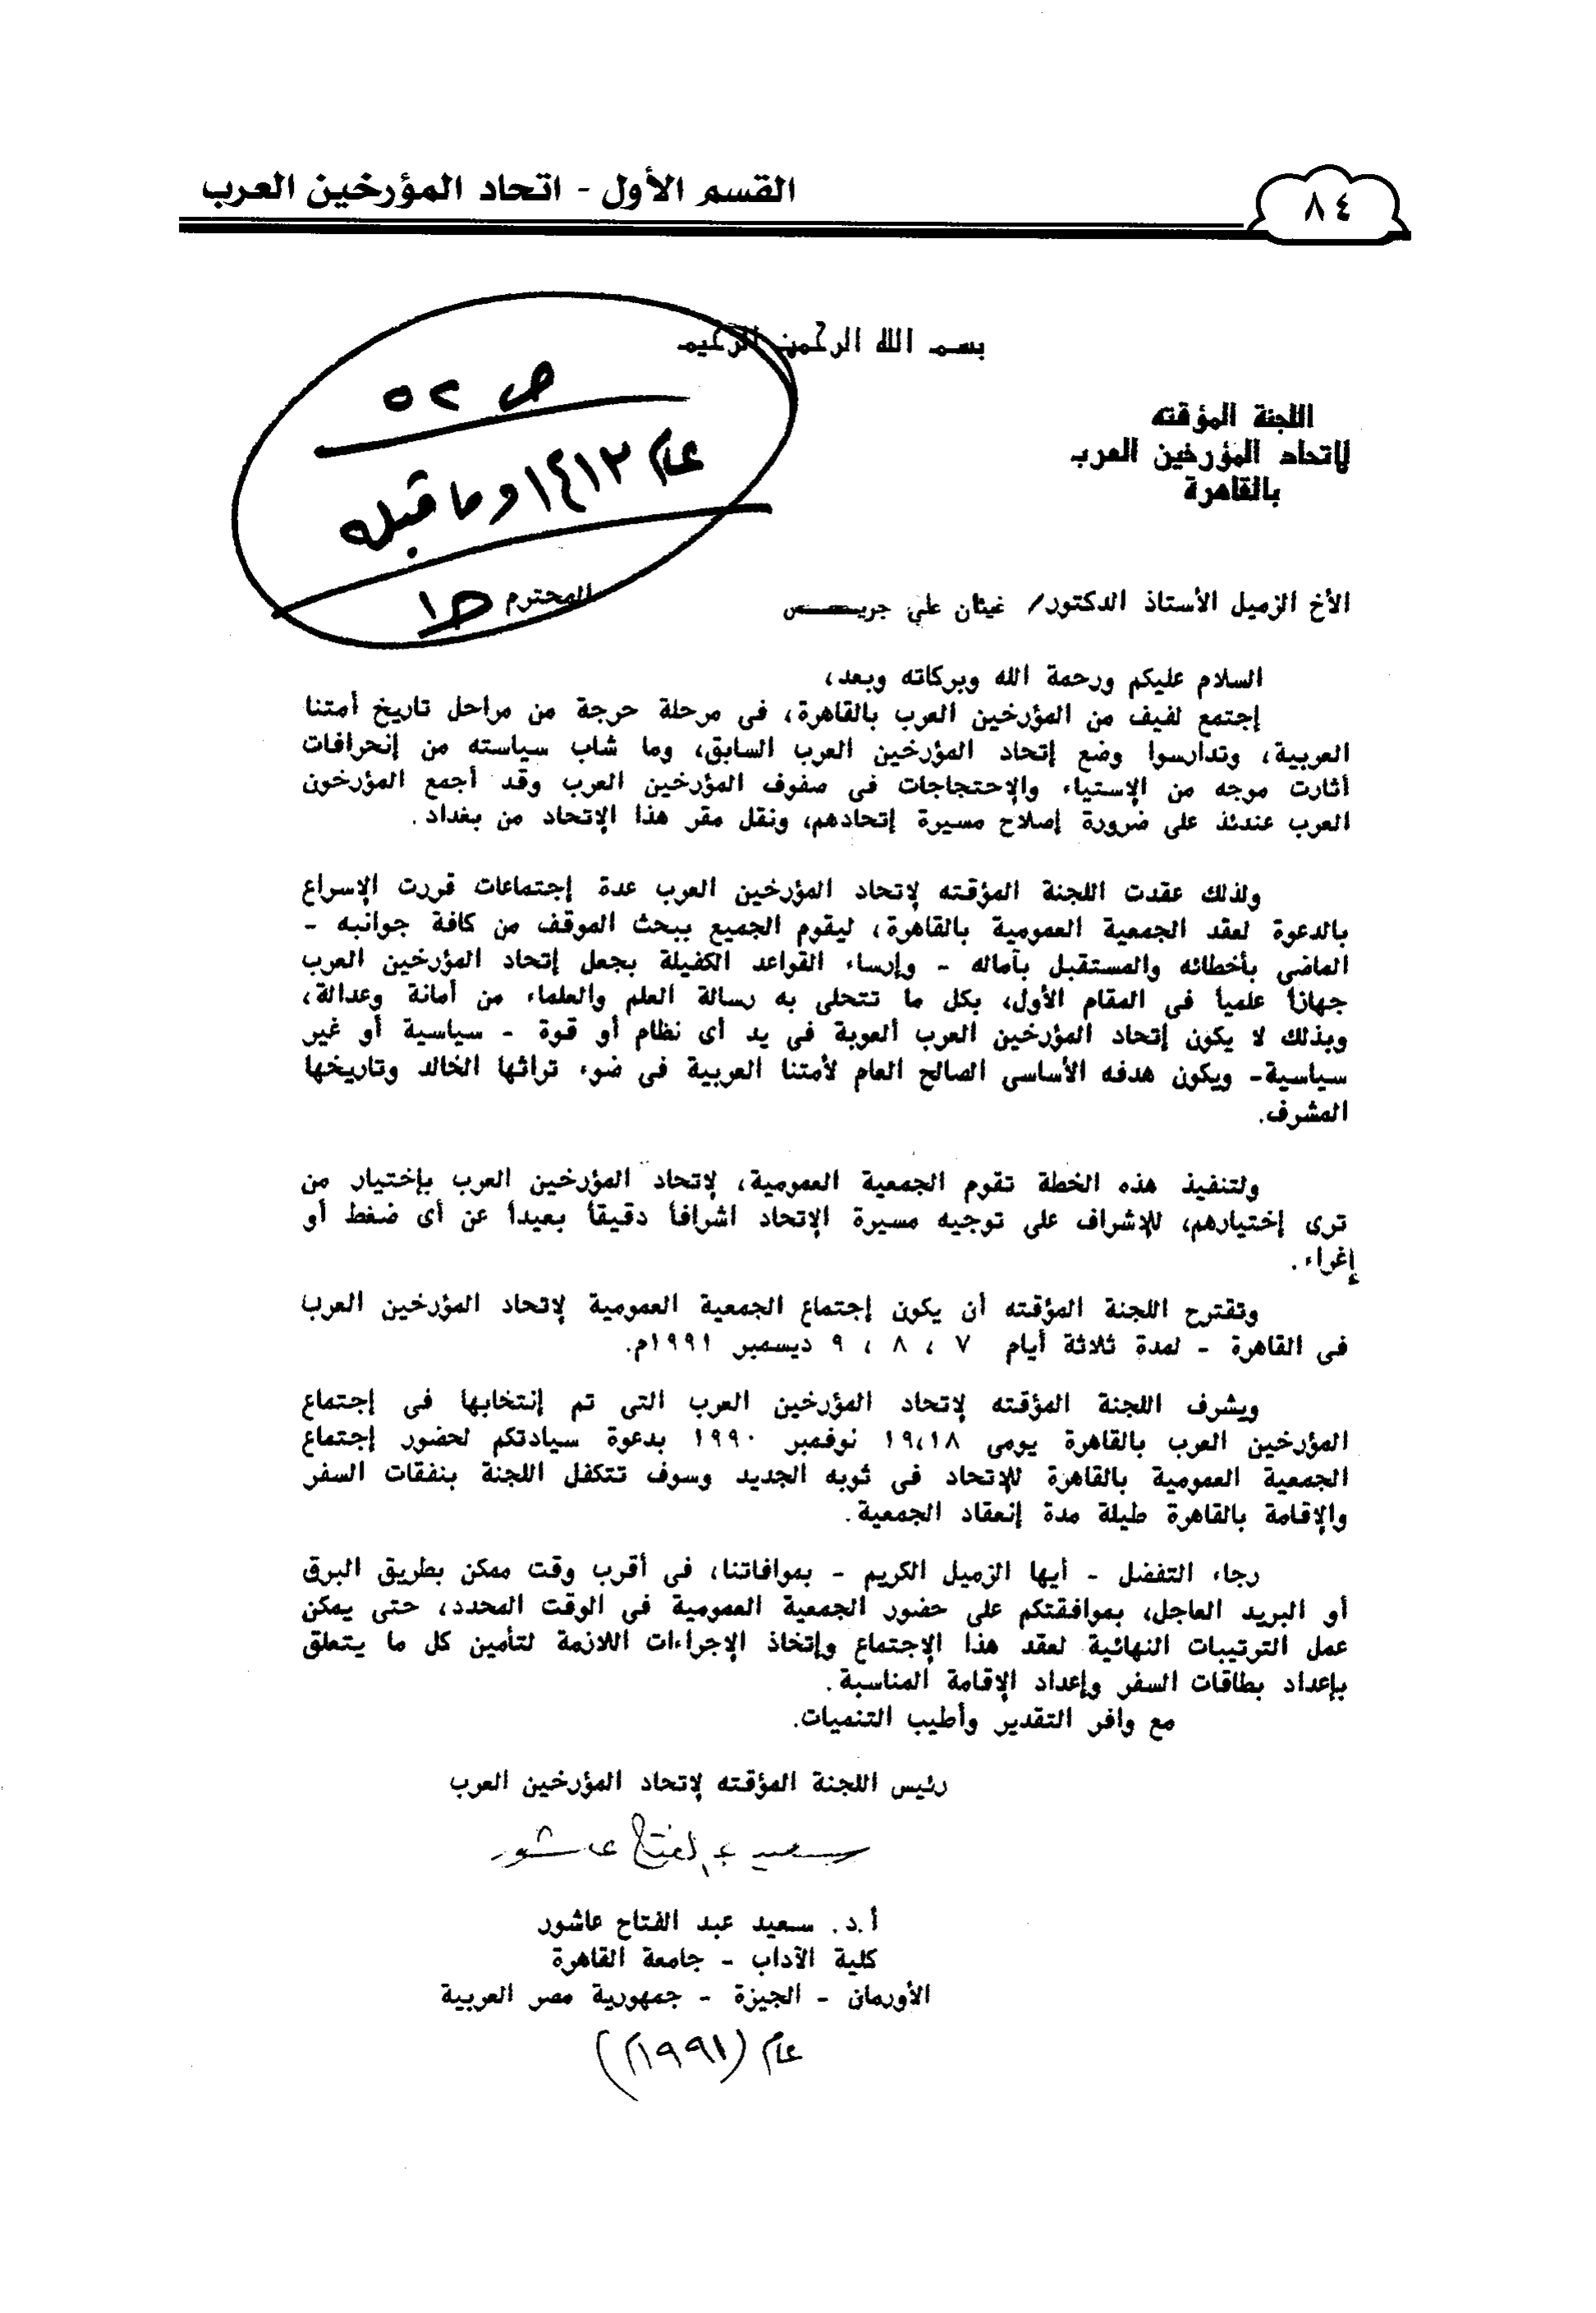 القسم الأول - اتحاد المؤرخين العرب
٨٤
بسم الله الرحمن الرحيم
ص ٥٢
عام ١٤١٢ وما قبله
اللجنة المؤقته
لإتحاد المؤرخين العرب
بالقاهرة
الأخ الزميل الأستاذ الدكتور/ غيثان علي جريس المحترم
السلام عليكم ورحمة الله وبركاته وبعد،
إجتمع لفيف من المؤرخين العرب بالقاهرة، فى مرحلة حرجة من مراحل تاريخ أمتنا
العربية، وتدارسوا وضع إتحاد المؤرخين العرب السابق، وما شاب سياسته من إنحرافات
أثارت موجه من الإستياء والإحتجاجات فى صفوف المؤرخين العرب وقد أجمع المؤرخون
العرب عندئذ على ضرورة إصلاح مسيرة إتحادهم، ونقل مقر هذا الإتحاد من بغداد.
ولذلك عقدت اللجنة المؤقته لإتحاد المؤرخين العرب عدة إجتماعات قررت الإسراع
بالدعوة لعقد الجمعية العمومية بالقاهرة، ليقوم الجميع ببحث الموقف من كافة جوانبه -
الماضى بأخطائه والمستقبل بآماله - وإرساء القواعد الكفيلة بجعل إتحاد المؤرخين العرب
جهازاً علمياً فى المقام الأول، بكل ما تتحلى به رسالة العلم والعلماء من أمانة وعدالة،
وبذلك لا يكون إتحاد المؤرخين العرب ألعوبة فى يد أى نظام أو قوة - سياسية أو غير
سياسية- ويكون هدفه الأساسى الصالح العام لأمتنا العربية فى ضوء تراثها الخالد وتاريخها
المشرف.
ولتنفيذ هذه الخطة تقوم الجمعية العمومية، لإتحاد المؤرخين العرب بإختيار من
ترى إختيارهم، للإشراف على توجيه مسيرة الإتحاد اشرافاً دقيقاً بعيداً عن أى ضغط أو
إغراء.
وتقترح اللجنة المؤقته أن يكون إجتماع الجمعية العمومية لإتحاد المؤرخين العرب
فى القاهرة - لمدة ثلاثة أيام ٧ ، ٨ ، ٩ ديسمبر ١٩٩١م.
ويشرف اللجنة المؤقته لإتحاد المؤرخين العرب التى تم إنتخابها فى إجتماع
المؤرخين العرب بالقاهرة يومى ١٩،١٨ نوفمبر ١٩٩٠ بدعوة سيادتكم لحضور إجتماع
الجمعية العمومية بالقاهرة للإتحاد فى ثوبه الجديد وسوف تتكفل اللجنة بنفقات السفر
والإقامة بالقاهرة طيلة مدة إنعقاد الجمعية.
رجاء التفضل - أيها الزميل الكريم - بموافاتنا، فى أقرب وقت ممكن بطريق البرق
أو البريد العاجل، بموافقتكم على حضور الجمعية العمومية فى الوقت المحدد، حتى يمكن
عمل الترتيبات النهائية لعقد هذا الإجتماع وإتخاذ الإجراءات اللازمة لتأمين كل ما يتعلق
بإعداد بطاقات السفر وإعداد الإقامة المناسبة.
مع وافر التقدير وأطيب التنميات.
رئيس اللجنة المؤقته لإتحاد المؤرخين العرب
سعيد عبد الفتاح عاشور
أ.د. سعيد عبد الفتاح عاشور
كلية الآداب - جامعة القاهرة
الأورمان - الجيزة - جمهورية مصر العربية
عام (١٩٩١م)